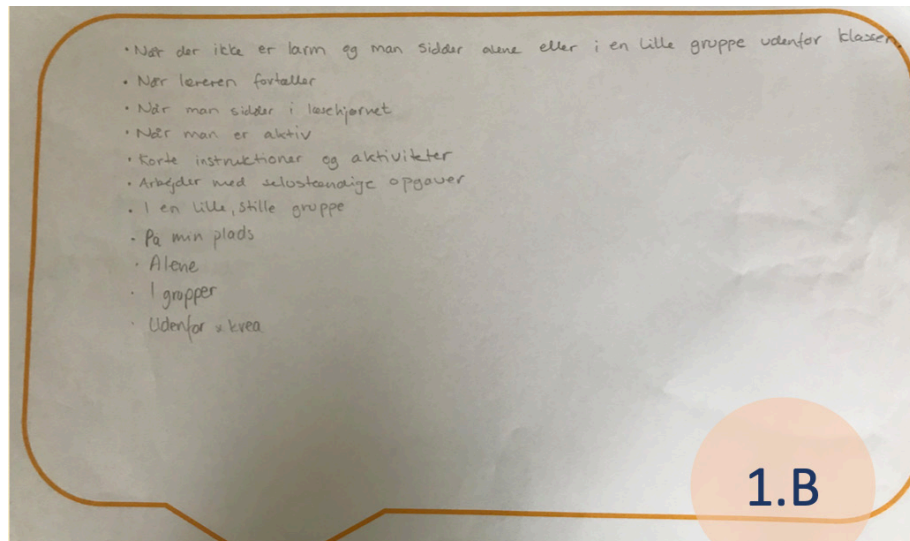 • Når der ikke er larm og man sidder alene eller i en lille gruppe udenfor klassen.
• Når læreren fortæller
• Når man sidder i læsehjørnet
• Når man er aktiv
• Korte instruktioner og aktiviteter
• Arbejder med selvstændige opgaver
• I en lille, stille gruppe
• På min plads
• Alene
• I grupper
• Udenfor krea
1.B